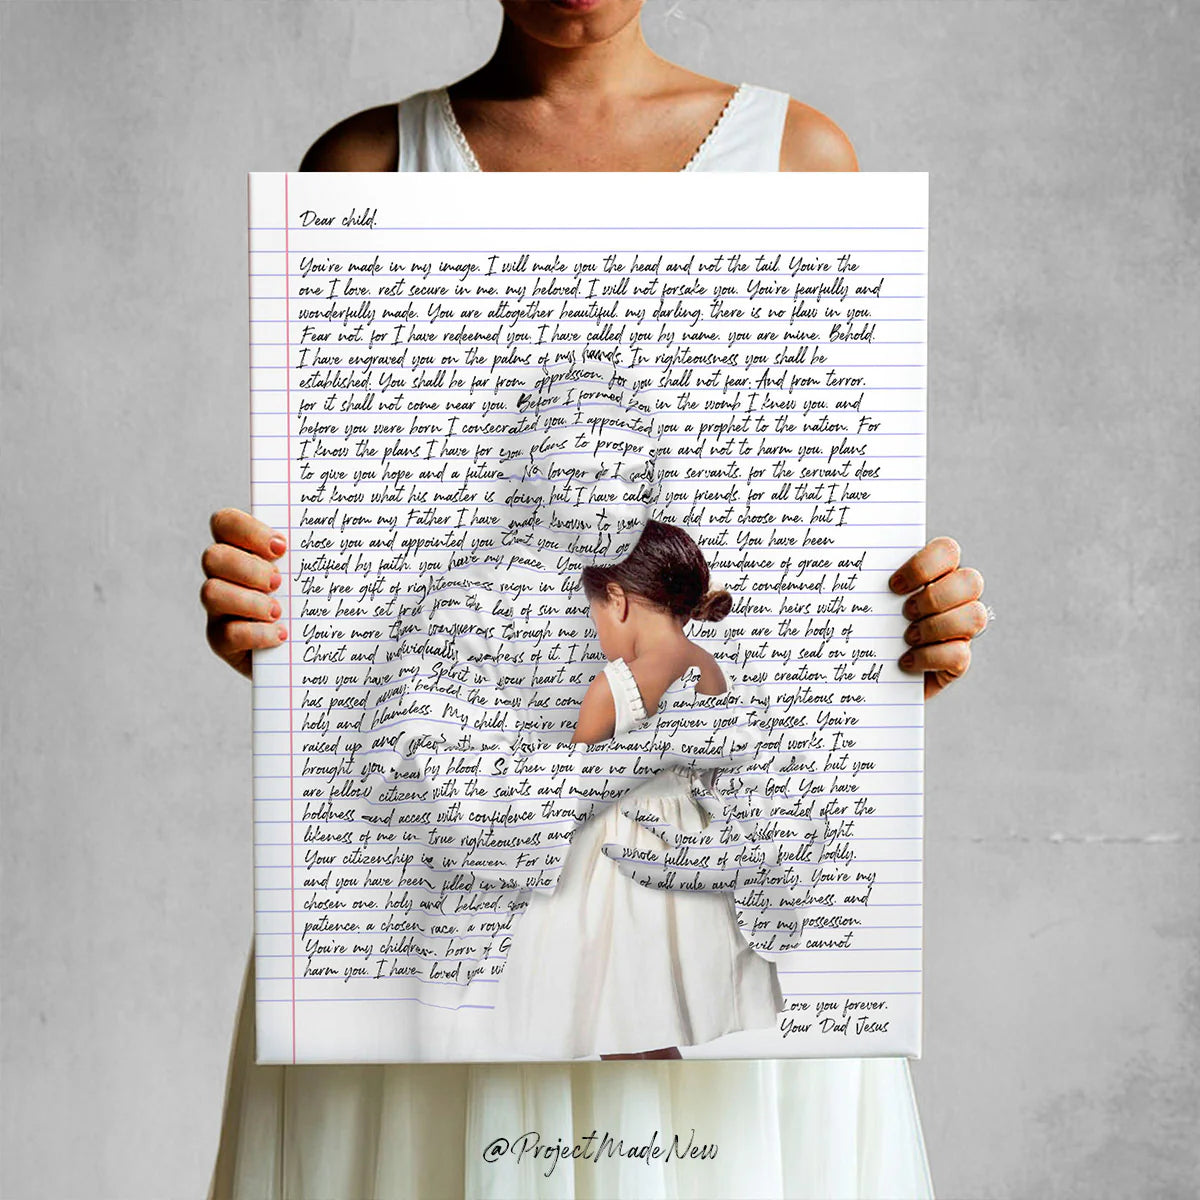 Dear child,
You're made in my image. I will make you the head and not the tail. You're the
one I love. rest secure in me. my beloved. I will not forsake you. You're fearfully and
wonderfully made. You are altogether beautiful. my darling. there is no flaw in you.
Fear not. for I have redeemed you. I have called you by name. you are mine. Behold.
I have engraved you on the palms of my hands. In righteousness you shall be
established. You shall be far from oppression. for you shall not fear. And from terror.
for it shall not come near you. Before I formed you in the womb I knew you. and
before you were born I consecrated you. I appointed you a prophet to the nation. For
I know the plans I have for you. plans to prosper you and not to harm you. plans
to give you hope and a future. No longer do I call you servants. for the servant does
not know what his master is doing. but I have called you friends. for all that I have
heard from my Father I have made known to you. You did not choose me. but I
chose you and appointed you that you should go fruit. You have been
justified by faith. you have my peace. You abundance of grace and
the free gift of righteousness reign in life not condemned. but
have been set free from the law of sin and children. heirs with me.
You're more than conquerors through me Now you are the body of
Christ and individually members of it. I have and put my seal on you.
now you have my Spirit in your heart as a You a new creation. the old
has passed away. behold. the new has come ambassador. my righteous one.
holy and blameless. My child. you're forgiven your trespasses. You're
raised up and seated with me. You're my workmanship. created for good works. I've
brought you near by blood. So then you are no longer strangers and aliens. but you
are fellow citizens with the saints and members of God. You have
boldness and access with confidence through faith You're created after the
likeness of me in true righteousness and you're the children of light.
Your citizenship is in heaven. For in whole fullness of deity dwells bodily.
and you have been filled in me. who of all rule and authority. You're my
chosen one. holy and beloved. meekness. and
patience. a chosen race. a royal for my possession.
You're my children. born of evil one cannot
harm you. I have loved you
Love you forever.
Your Dad Jesus
@ProjectMadeNew